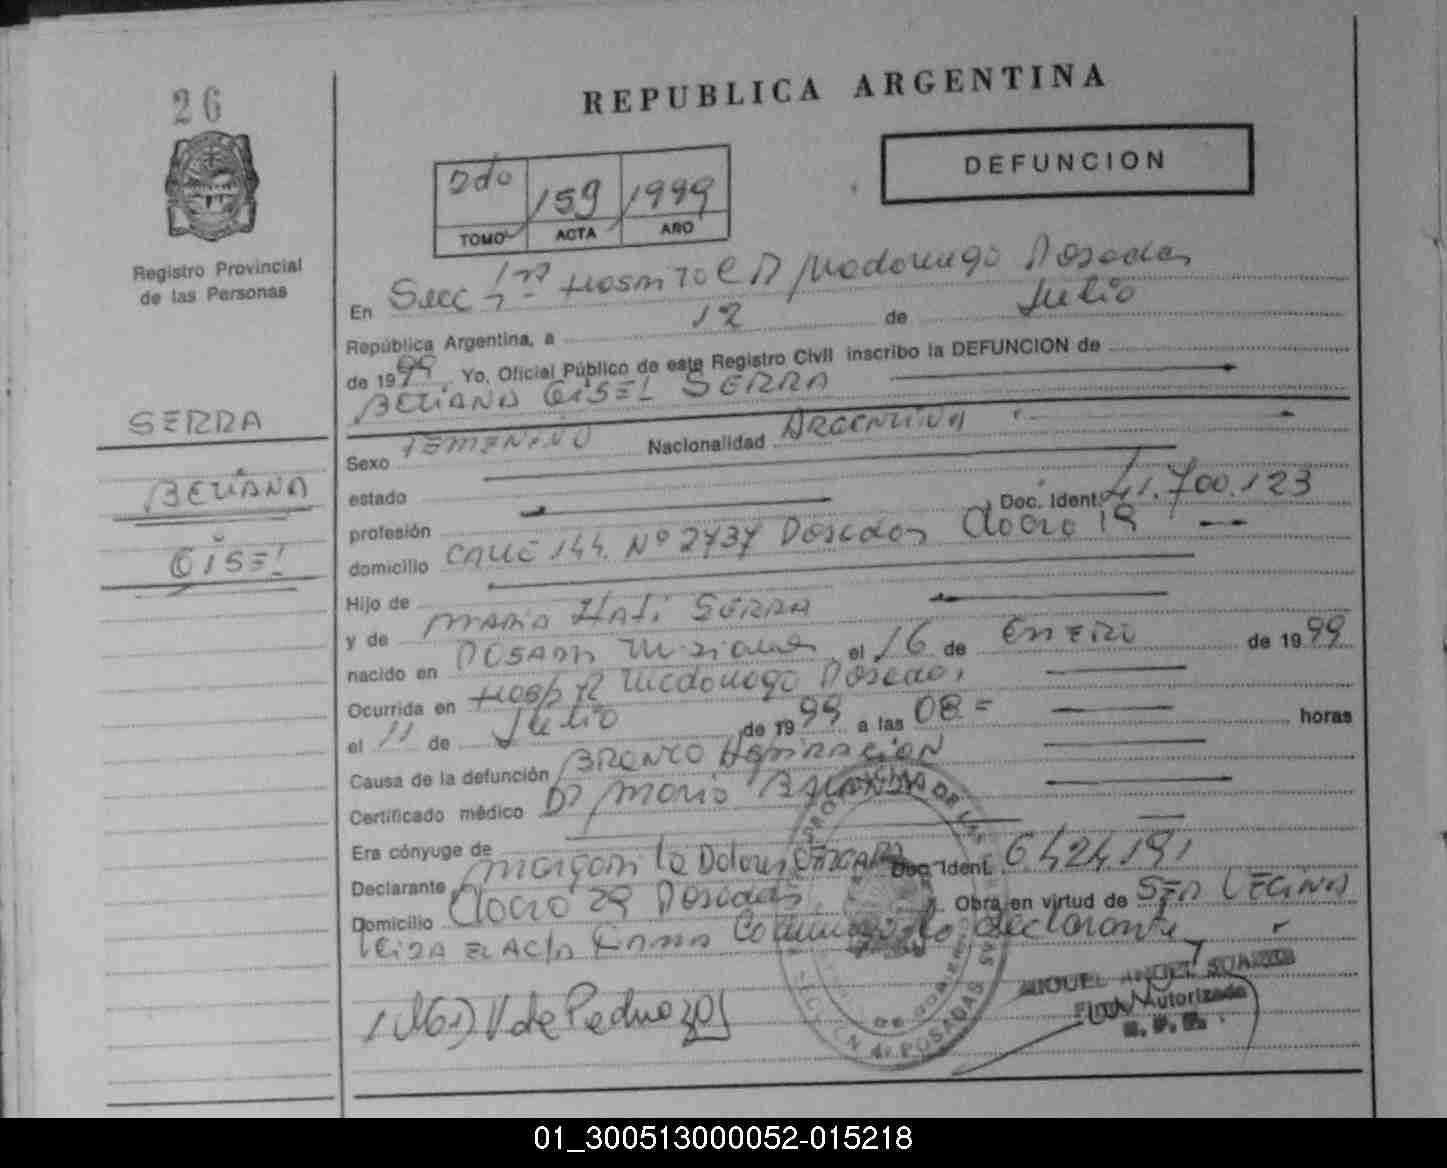 26
REPUBLICA ARGENTINA
DEFUNCION
2do 159 1999
TOMO ACTA AÑO
Registro Provincial
de las Personas
En Secc 1ra Hospital R Madariaga Posadas
República Argentina, a 12 de Julio
de 1999. Yo, Oficial Público de este Registro Civil inscribo la DEFUNCION de
BELIANA GISEL SERRA
SERRA
BELIANA
GISEL
Sexo FEMENINO Nacionalidad ARGENTINA
estado
profesión Doc. Ident. 41.700.123
domicilio CALLE 144 Nº 2737 Posadas Chacra 19
Hijo de
y de MARIA ITATI SERRA
nacido en POSADAS Misiones el 16 de ENERO de 1999
Ocurrida en Hosp R Madariaga Posadas
el 11 de Julio de 1999 a las 08= horas
Causa de la defunción BRONCO ASPIRACION
Certificado médico Dr Mario
Era cónyuge de
Declarante Doc. Ident. 6.424.191
Domicilio Chacra 29 Posadas Obra en virtud de SER VECINA
LEIDA EL ACTA Firma la declarante
V de Pedrozo
MIGUEL ANGEL
Autorizado